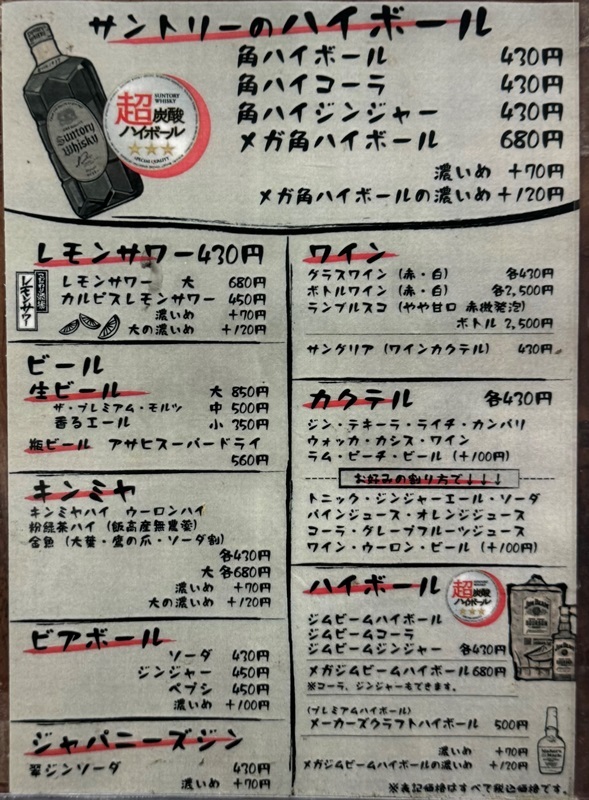 サントリーのハイボール
角ハイボール 430円
角ハイコーラ 430円
角ハイジンジャー 430円
メガ角ハイボール 680円
濃いめ +70円
メガ角ハイボールの濃いめ +120円
Suntory
Whisky
超炭酸
ハイボール
SUNTORY
WHISKY
レモンサワー430円
レモンサワー
レモンサワー 大 680円
カルピスレモンサワー 450円
濃いめ +70円
大の濃いめ +120円
ビール
生ビール 大 850円
ザ・プレミアム・モルツ 中 500円
香るエール 小 350円
瓶ビール アサヒスーパードライ
560円
キンミヤ
キンミヤハイ ウーロンハイ
粉緑茶ハイ (飯高産無農薬)
金魚 (大葉・鷹の爪・ソーダ割)
各430円
大 各680円
濃いめ +70円
大の濃いめ +120円
ビアボール
ソーダ 430円
ジンジャー 450円
ペプシ 450円
濃いめ +100円
ジャパニーズジン
翠ジンソーダ 430円
濃いめ +70円
ワイン
グラスワイン (赤・白) 各430円
ボトルワイン (赤・白) 各2,500円
ランブルスコ (やや甘口 赤微発泡)
ボトル 2,500円
サングリア (ワインカクテル) 430円
カクテル 各430円
ジン・テキーラ・ライチ・カンパリ
ウォッカ・カシス・ワイン
ラム・ピーチ・ビール (+100円)
お好みの割り方で↓↓↓
トニック・ジンジャーエール・ソーダ
パインジュース・オレンジジュース
コーラ・グレープフルーツジュース
ワイン・ウーロン・ビール (+100円)
ハイボール
超炭酸
ハイボール
JIM BEAM
ジムビームハイボール
ジムビームコーラ
ジムビームジンジャー 各430円
メガジムビームハイボール680円
※コーラ、ジンジャーもできます。
(プレミアムハイボール)
メーカーズクラフトハイボール 500円
濃いめ +70円
メガジムビームハイボールの濃いめ +120円
※表記価格はすべて税込価格です。